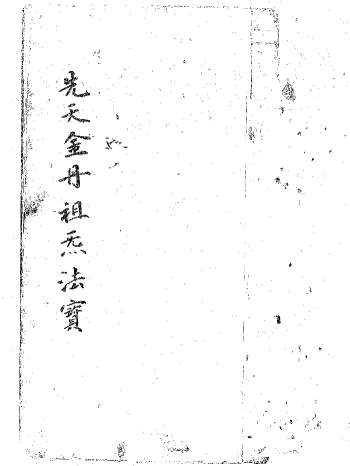 先天金丹祖炁法寶